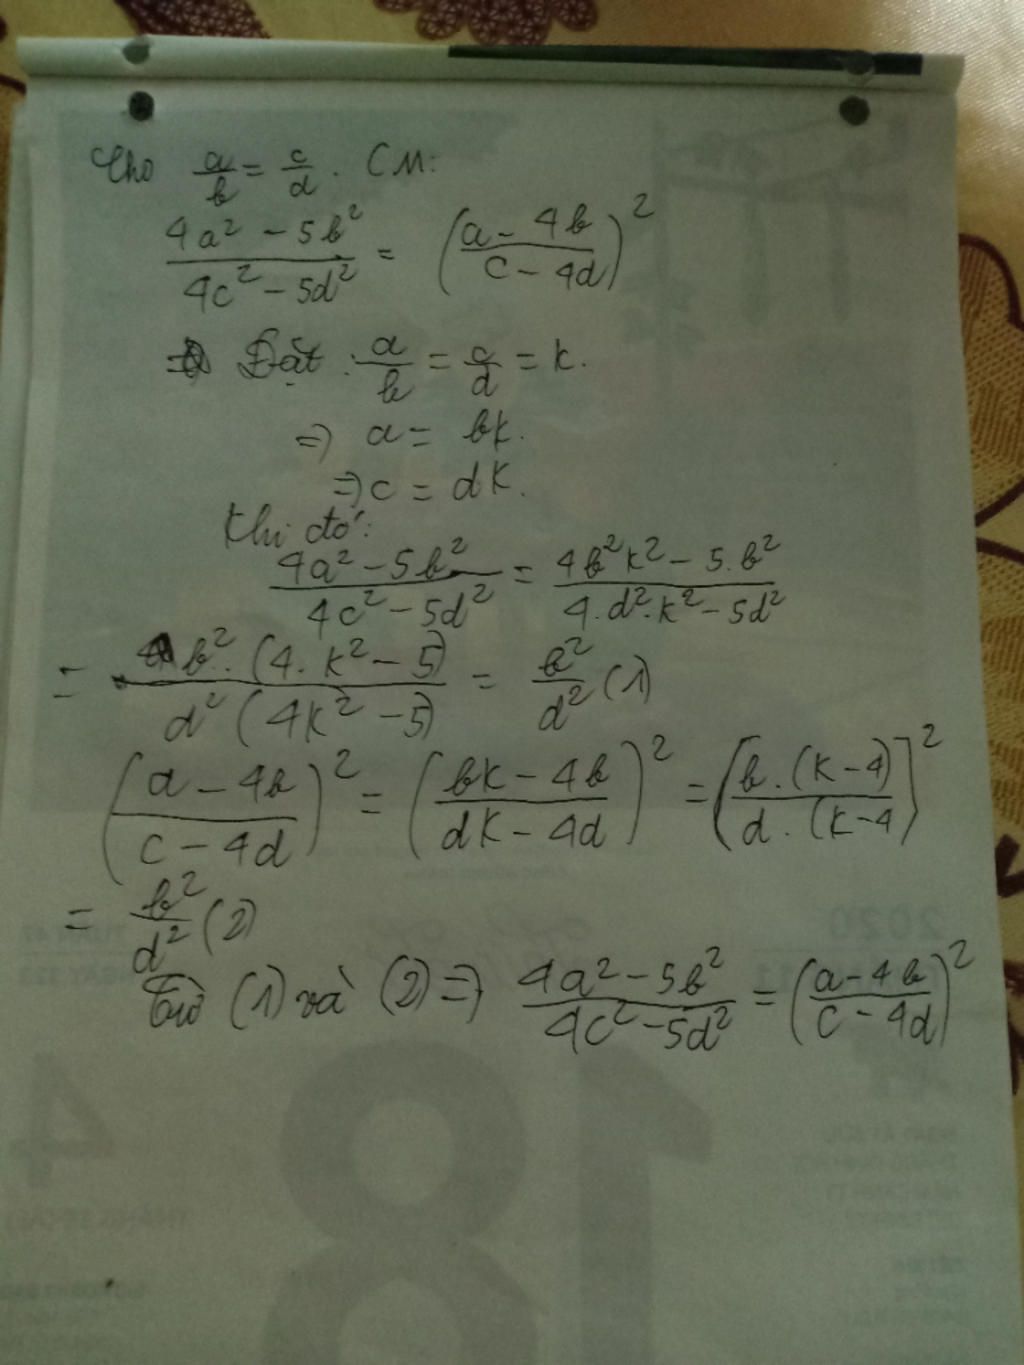 Cho a/b = c/d. CM:
(4a² - 5b²)/(4c² - 5d²) = ((a - 4b)/(c - 4d))²
Đặt: a/b = c/d = k.
=> a = bk.
=> c = dk.
Khi đó:
(4a² - 5b²)/(4c² - 5d²) = (4b²k² - 5.b²)/(4.d².k² - 5d²)
= (b².(4.k² - 5))/(d²(4k² - 5)) = b²/d² (1)
((a - 4b)/(c - 4d))² = ((bk - 4b)/(dk - 4d))² = [(b.(k - 4))/(d.(k - 4)]²
= b²/d² (2)
Từ (1) và (2) => (4a² - 5b²)/(4c² - 5d²) = ((a - 4b)/(c - 4d))²
2020
18